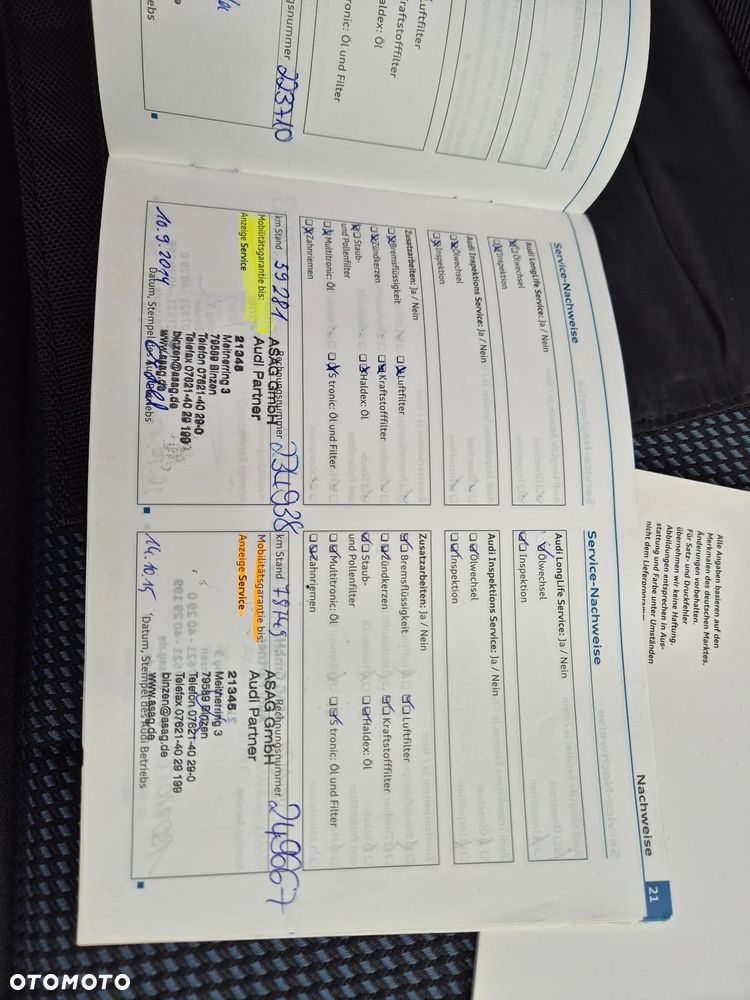 uftfilter
raftstofffilter
aldex: Öl
tronic: Öl und Filter
gsnummer 223710
ebs
Nachweise
21
Service-Nachweise
Audi LongLife Service: Ja / Nein
Ölwechsel
Inspektion
Audi Inspektions Service: Ja / Nein
Ölwechsel
Inspektion
Zusatzarbeiten: Ja / Nein
Bremsflüssigkeit
Luftfilter
Zündkerzen
Kraftstofffilter
Staub-
und Pollenfilter
Haldex: Öl
Multitronic: Öl
S tronic: Öl und Filter
Zahnriemen
km Stand 59281
Rechnungsnummer 234938
Mobilitätsgarantie bis:
Anzeige Service
ASAG GmbH
Audi Partner
21345
Meitnerring 3
79589 Binzen
Telefon 07621-40 29-0
Telefax 07621-40 29 199
binzen@asag.de
www.asag.de
10.9.2014
Datum, Stempel des Audi Betriebs
Service-Nachweise
Audi LongLife Service: Ja / Nein
Ölwechsel
Inspektion
Audi Inspektions Service: Ja / Nein
Ölwechsel
Inspektion
Zusatzarbeiten: Ja / Nein
Bremsflüssigkeit
Luftfilter
Zündkerzen
Kraftstofffilter
Staub-
und Pollenfilter
Haldex: Öl
Multitronic: Öl
S tronic: Öl und Filter
Zahnriemen
km Stand
Rechnungsnummer 249667
Mobilitätsgarantie bis:
Anzeige Service
ASAG GmbH
Audi Partner
21345
Meitnerring 3
79589 Binzen
Telefon 07621-40 29-0
Telefax 07621-40 29 199
binzen@asag.de
www.asag.de
14.10.15
Datum, Stempel des Audi Betriebs
Alle Angaben basieren auf den
Merkmalen des deutschen Marktes.
Änderungen vorbehalten.
Für Satz- und Druckfehler
übernehmen wir keine Haftung.
Abbildungen entsprechen in Aus-
stattung und Farbe unter Umständen
nicht dem Lieferprogramm
OTOMOTO